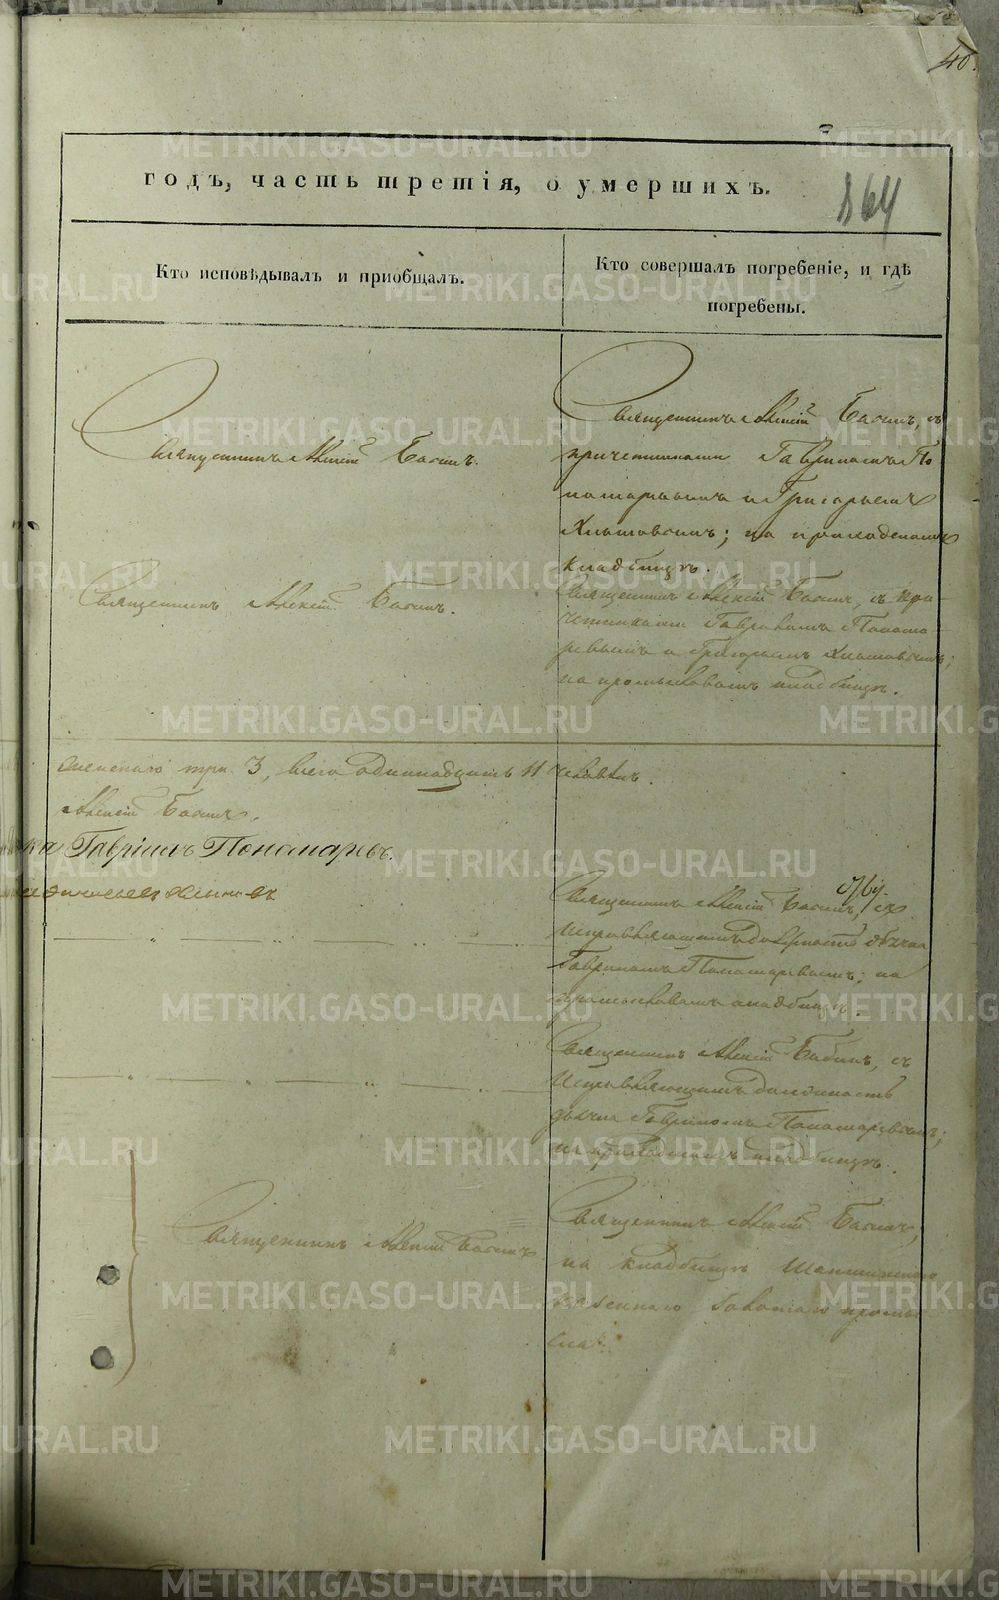 40.
годъ, часть третія, о умершихъ.
864
Кто исповѣдывалъ и пріобщалъ.
Кто совершалъ погребеніе, и гдѣ
погребены.
Священникъ Алексій Бабинъ.
Священникъ Алексій Бабинъ, съ
причетниками Гавріиломъ По
номаревымъ и Григорьемъ
Хлыновымъ; на приходскомъ
кладбищѣ.
Священникъ Алексій Бабинъ.
Священникъ Алексій Бабинъ, съ при
четниками Гавріиломъ Понома
ревымъ и Григорьемъ Хлыновымъ;
на промысловомъ кладбищѣ.
женскаго три 3, всего одиннадцать 11 человѣкъ.
Алексій Бабинъ.
Гавріилъ Пономаревъ.
Священникъ Алексій Бабинъ, съ
Исправляющимъ должность дьячка
Гавріиломъ Пономаревымъ; на
промысловомъ кладбищѣ.
Священникъ Алексій Бабинъ, съ
Исправляющимъ должность
дьячка Гавріиломъ Пономаревымъ;
на приходскомъ кладбищѣ.
Священникъ Алексій Бабинъ
Священникъ Алексій Бабинъ,
на кладбищѣ
казеннаго золотаго промы
сла.
METRIKI.GASO-URAL.RU